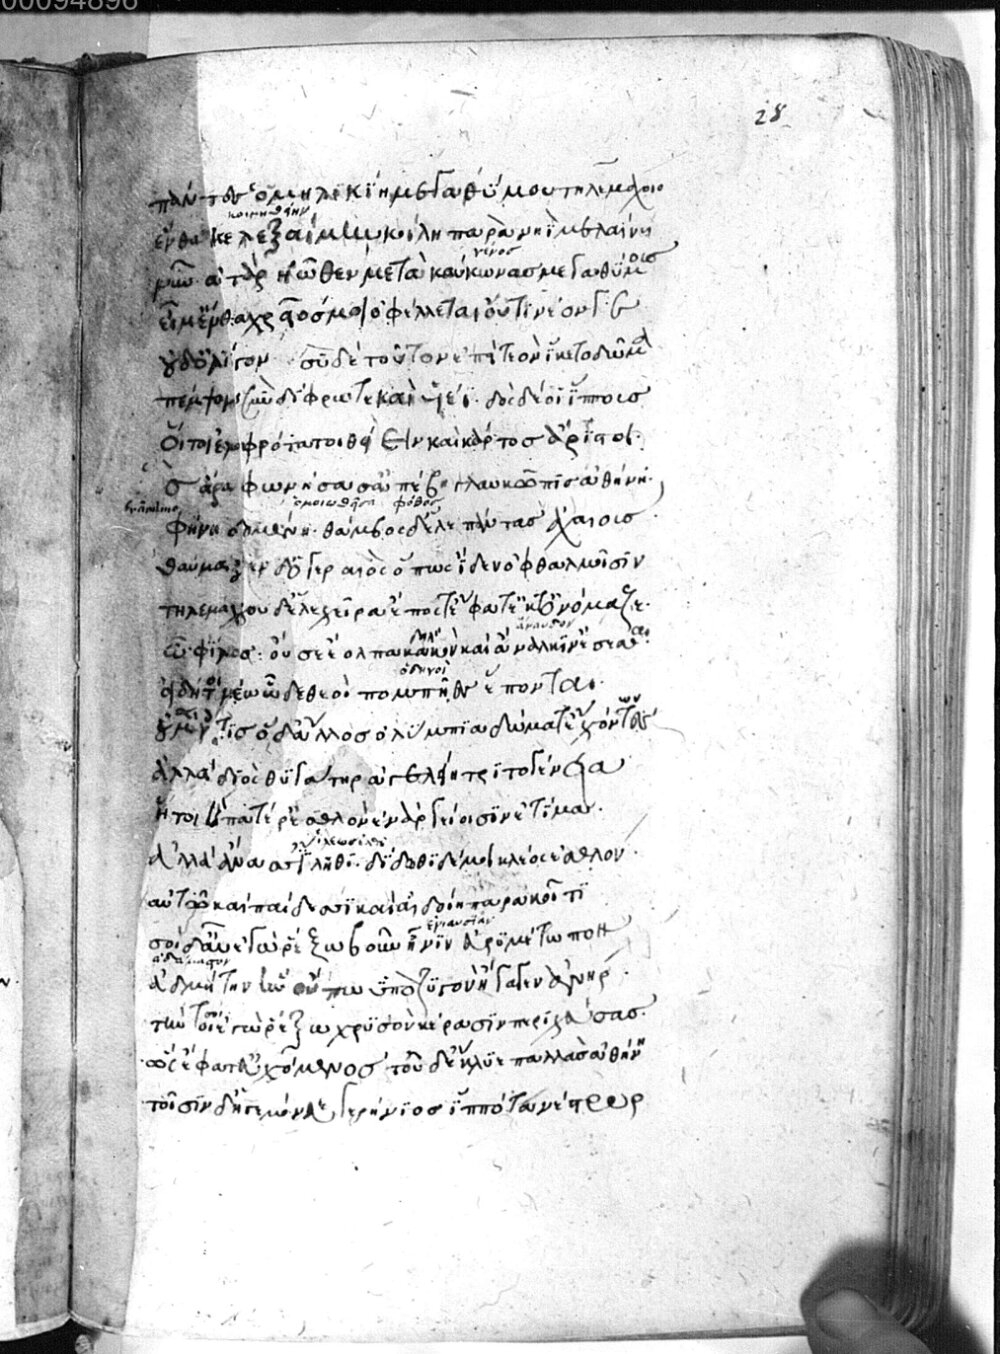 00094896
28
πάντες ὁμηλικίη μεγαθύμου τηλεμάχοιο
κοιμηθείην
ἔνθα κε λεξαίμην κοίλη παρὰ νηῒ μελαίνη
γένος
νῦν· ἀτὰρ ἠῶθεν μετὰ καύκωνας μεγαθύμοις
εἶμ' ἔνθα χρεῖός μοι ὀφέλλεται οὔτι νέον γε
οὐδ' ὀλίγον· σὺ δὲ τοῦτον ἐπεὶ τεὸν ἵκετο δῶμα
πέμψον σὺν δίφρω τε καὶ υἱέϊ· δὸς δέ οἱ ἵππους
οἵ τοι ἐλαφρότατοι θείειν καὶ κάρτος ἄριστοι·
ὣς ἄρα φωνήσασ' ἀπέβη γλαυκῶπις ἀθήνη·
ὁμοιωθεῖσα φόβος
φήνη εἰδομένη· θάμβος δ' ἕλε πάντας ἀχαιούς
θαύμαζεν δ' ὁ γεραιὸς ὅπως ἴδεν ὀφθαλμοῖσιν
τηλεμάχου δ' ἕλε χεῖρα ἔπος τ' ἔφατ' ἔκ τ' ὀνόμαζε·
ἄνανδρον
ὦ φίλος· οὔ σε ἔολπα κακὸν καὶ ἄναλκιν ἔσεσθαι
ὁδηγοὶ
εἰ δή τοι νέω ὧδε θεοὶ πομπῆες ἕπονται·
οὐ μὲν γάρ τις ὅδ' ἄλλος ὀλύμπια δώματ' ἐχόντων
ἀλλὰ διὸς θυγάτηρ ἀγελείη τριτογένεια
ἥ τοι καὶ πατέρ' ἐσθλὸν ἐν ἀργείοισιν ἐτίμα·
ἀλλὰ ἄνασσ' ἵληθι· δίδωθι δέ μοι κλέος ἐσθλόν·
αὐτῶ καὶ παίδεσσι καὶ αἰδοίη παρακοίτι
ἐνιαυσίαν
σοὶ δ' αὖ ἐγὼ ῥέξω βοῦν ἦνιν εὐρυμέτωπον
ἀδάμαστον
ἀδμήτην ἣν οὔπω ὑπὸ ζυγὸν ἤγαγεν ἀνήρ·
τήν τοι ἐγὼ ῥέξω χρυσὸν κέρασιν περιχεύας·
ὣς ἔφατ' εὐχόμενος τοῦ δ' ἔκλυε παλλὰς ἀθήνη
τοῖσιν δ' ἡγεμόνευε γερήνιος ἱππότα νέστωρ